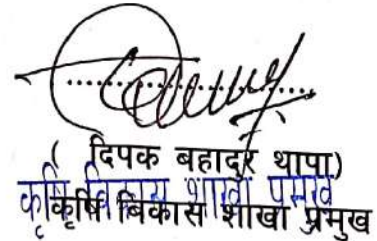 ( दिपक बहादुर थापा)
कृषि विकास शाखा प्रमुख
कृषि विकास शाखा प्रमुख